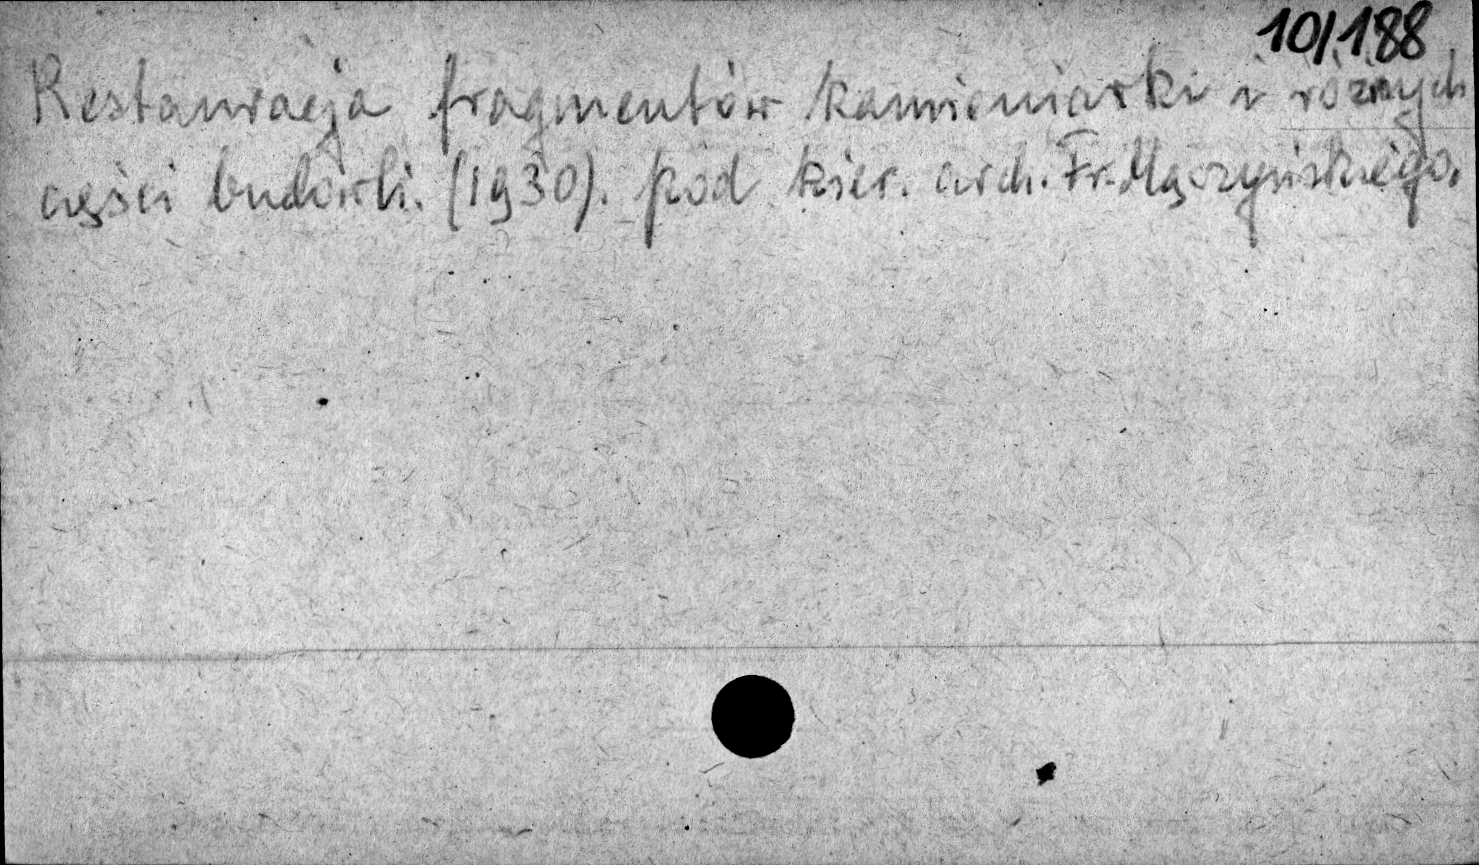 10/188
Restauracja fragmentów kamieniarki i różnych
części budowli. (1930). pod kier. arch. Fr. Mączyńskiego.